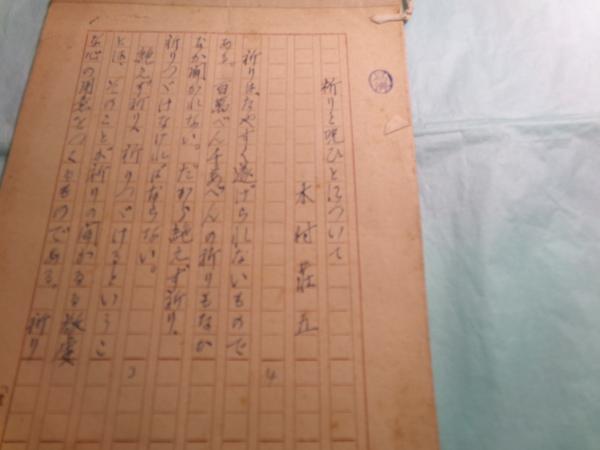 祈りと呪ひとについて
木村荘五
祈りはたやすく遂げられないもので
ある。百萬べん千萬べんの祈りもなか
なか聞かれない。だから絶えず祈り、
祈りつづけなければならない。
絶えず祈り、祈りつづけるといふこ
とは、そのことが祈りの聞かるる敬虔
な心の用意をつくるものである。祈り
4
3